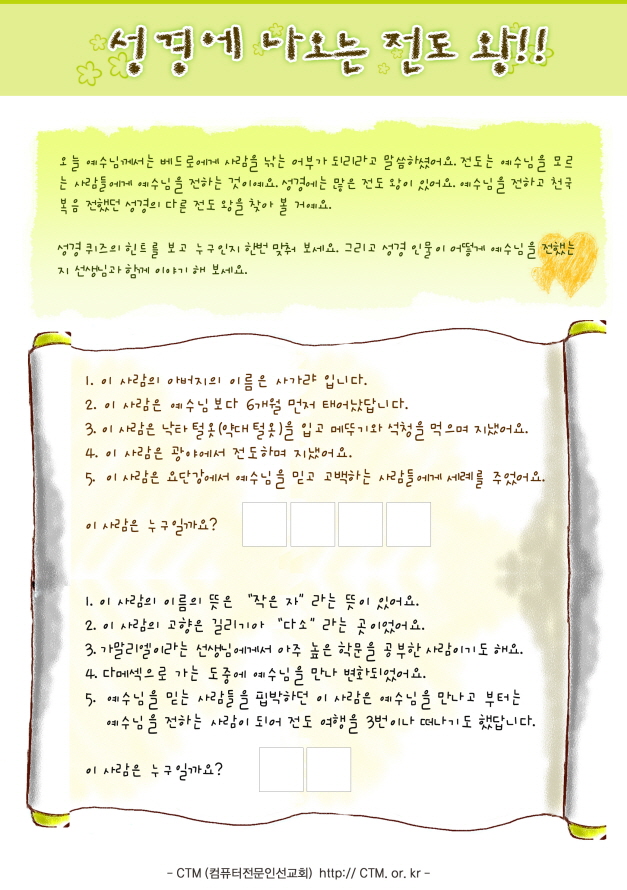 성경에 나오는 전도 왕!!
오늘 예수님께서는 베드로에게 사람을 낚는 어부가 되리라고 말씀하셨어요. 전도는 예수님을 모르
는 사람들에게 예수님을 전하는 것이예요. 성경에는 많은 전도 왕이 있어요. 예수님을 전하고 천국
복음 전했던 성경의 다른 전도 왕을 찾아 볼 거예요.
성경 퀴즈의 힌트를 보고 누구인지 한번 맞춰 보세요. 그리고 성경 인물이 어떻게 예수님을 전했는
지 선생님과 함께 이야기 해 보세요.
1. 이 사람의 아버지의 이름은 사가랴 입니다.
2. 이 사람은 예수님보다 6개월 먼저 태어났답니다.
3. 이 사람은 낙타 털옷(약대 털옷)을 입고 메뚜기와 석청을 먹으며 지냈어요.
4. 이 사람은 광야에서 전도하며 지냈어요.
5. 이 사람은 요단강에서 예수님을 믿고 고백하는 사람들에게 세례를 주었어요.
이 사람은 누구일까요?
1. 이 사람의 이름의 뜻은 "작은 자" 라는 뜻이 있어요.
2. 이 사람의 고향은 길리기아 "다소" 라는 곳이었어요.
3. 가말리엘이라는 선생님에게서 아주 높은 학문을 공부한 사람이기도 해요.
4. 다메섹으로 가는 도중에 예수님을 만나 변화되었어요.
5. 예수님을 믿는 사람들을 핍박하던 이 사람은 예수님을 만나고 부터는
예수님을 전하는 사람이 되어 전도 여행을 3번이나 떠나기도 했답니다.
이 사람은 누구일까요?
- CTM (컴퓨터전문인선교회) http:// CTM. or. kr -